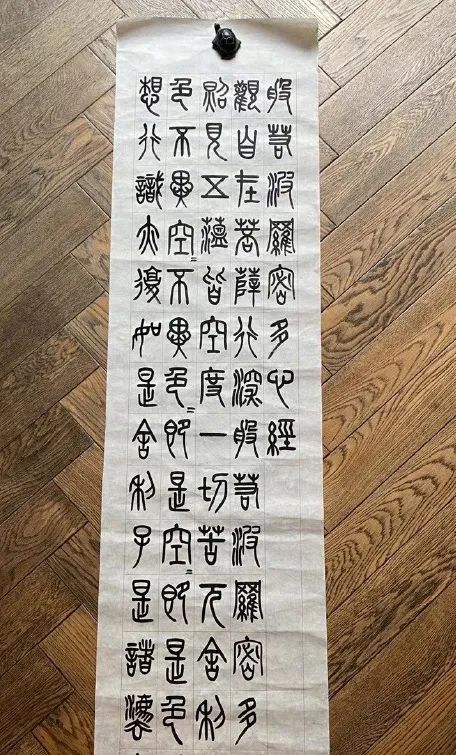 般若波羅密多心經
觀自在菩薩行深般若波羅密多
照見五蘊皆空度一切苦厄舍利
色不異空〻不異色〻即是空〻即是色
想行識亦復如是舍利子是諸灋